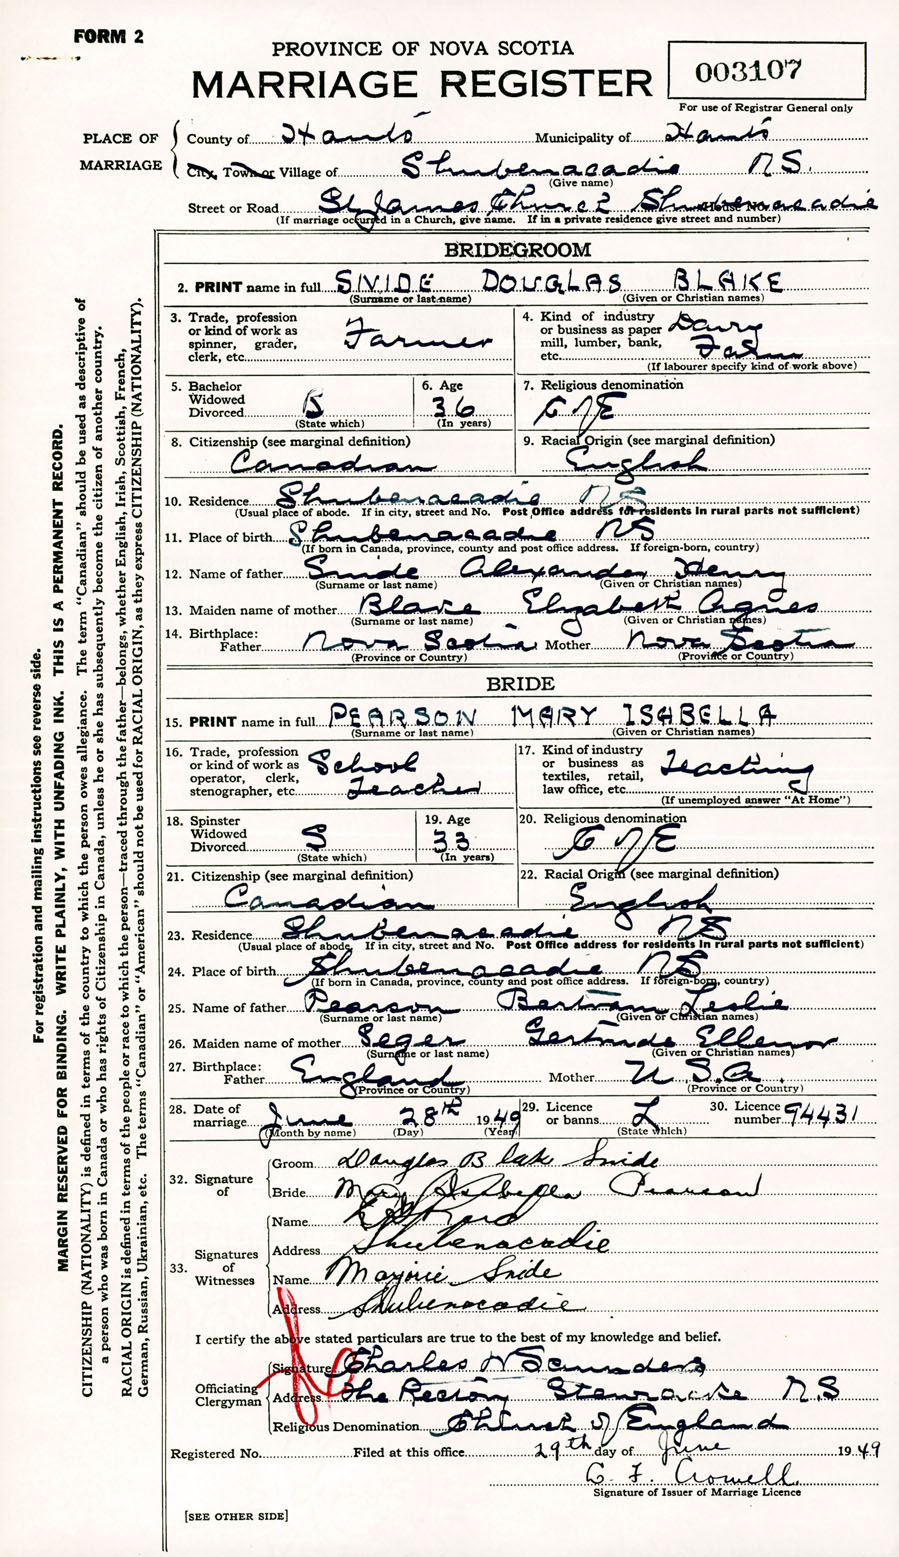 FORM 2
PROVINCE OF NOVA SCOTIA
MARRIAGE REGISTER
003107
For use of Registrar General only
PLACE OF MARRIAGE
County of Hants Municipality of Hants
City, Town or Village of Shubenacadie N.S.
(Give name)
Street or Road St James Church Shubenacadie House No.
(If marriage occurred in a Church, give name. If in a private residence give street and number)
BRIDEGROOM
2. PRINT name in full SNIDE DOUGLAS BLAKE
(Surname or last name) (Given or Christian names)
3. Trade, profession or kind of work as spinner, grader, clerk, etc. Farmer
4. Kind of industry or business as paper mill, lumber, bank, etc. Dairy Farm
(If labourer specify kind of work above)
5. Bachelor Widowed Divorced B
(State which)
6. Age 36
(In years)
7. Religious denomination
C of E
8. Citizenship (see marginal definition)
Canadian
9. Racial Origin (see marginal definition)
English
10. Residence Shubenacadie NS
(Usual place of abode. If in city, street and No. Post Office address for residents in rural parts not sufficient)
11. Place of birth Shubenacadie NS
(If born in Canada, province, county and post office address. If foreign-born, country)
12. Name of father Snide Alexander Henry
(Surname or last name) (Given or Christian names)
13. Maiden name of mother Blake Elizabeth Agnes
(Surname or last name) (Given or Christian names)
14. Birthplace: Father Nova Scotia Mother Nova Scotia
(Province or Country) (Province or Country)
BRIDE
15. PRINT name in full PEARSON MARY ISABELLA
(Surname or last name) (Given or Christian names)
16. Trade, profession or kind of work as operator, clerk, stenographer, etc. School Teacher
17. Kind of industry or business as textiles, retail, law office, etc. Teaching
(If unemployed answer "At Home")
18. Spinster Widowed Divorced S
(State which)
19. Age 33
(In years)
20. Religious denomination
C of E
21. Citizenship (see marginal definition)
Canadian
22. Racial Origin (see marginal definition)
English
23. Residence Shubenacadie NS
(Usual place of abode. If in city, street and No. Post Office address for residents in rural parts not sufficient)
24. Place of birth Shubenacadie NS
(If born in Canada, province, county and post office address. If foreign-born, country)
25. Name of father Pearson Bertram Leslie
(Surname or last name) (Given or Christian names)
26. Maiden name of mother Seger Gertrude Ellenor
(Surname or last name) (Given or Christian names)
27. Birthplace: Father England Mother U.S.A.
(Province or Country) (Province or Country)
28. Date of marriage June 28th 1949
(Month by name) (Day) (Year)
29. Licence or banns L
(State which)
30. Licence number 94431
32. Signature of
Groom Douglas Blake Snide
Bride Mary Isabella Pearson
33. Signatures of Witnesses
Name
Address Shubenacadie
Name Marjorie Snide
Address Shubenacadie
I certify the above stated particulars are true to the best of my knowledge and belief.
Officiating Clergyman
Signature Charles N Saunders
Address The Rectory Stewiacke N.S
Religious Denomination Church of England
Registered No. Filed at this office 29th day of June 1949
C. F. Crowell
Signature of Issuer of Marriage Licence
[SEE OTHER SIDE]
For registration and mailing instructions see reverse side.
MARGIN RESERVED FOR BINDING. WRITE PLAINLY, WITH UNFADING INK. THIS IS A PERMANENT RECORD.
CITIZENSHIP (NATIONALITY) is defined in terms of the country to which the person owes allegiance. The term "Canadian" should be used as descriptive of
a person who was born in Canada or who has rights of Citizenship in Canada, unless he or she has subsequently become the citizen of another country.
RACIAL ORIGIN is defined in terms of the people or race to which the person—traced through the father—belongs, whether English, Irish, Scottish, French,
German, Russian, Ukrainian, etc. The terms "Canadian" or "American" should not be used for RACIAL ORIGIN, as they express CITIZENSHIP (NATIONALITY).